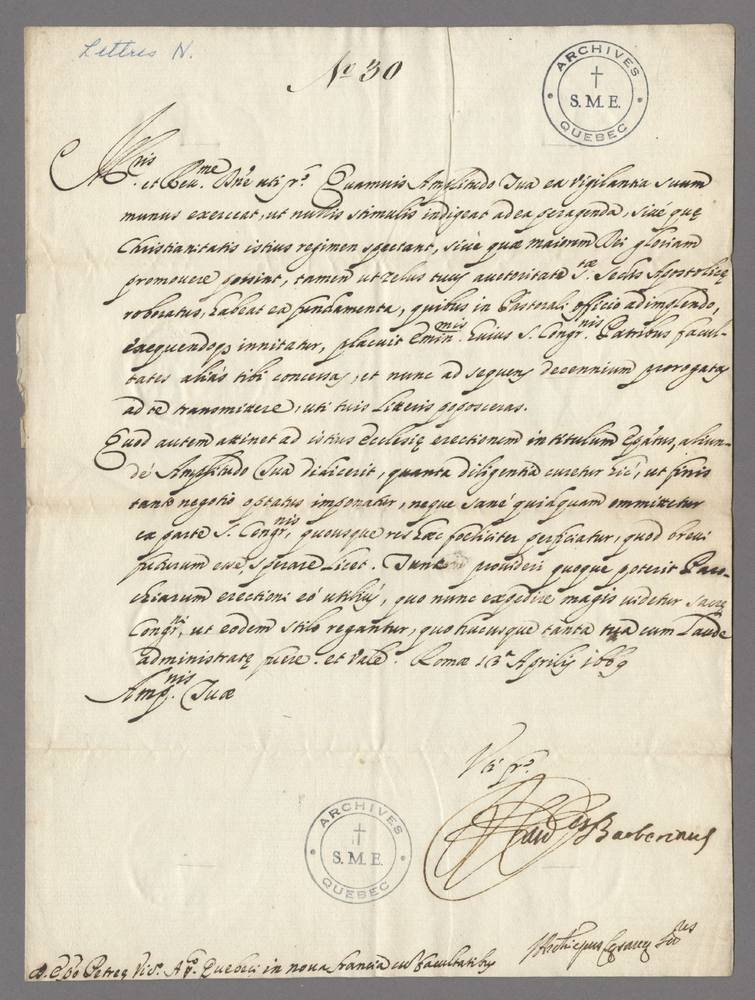 Lettres N.
No 30
ARCHIVES
S. M. E.
QUEBEC
et Reu.me Dne uti fr. Quamuis Amplitudo Tua ea vigilantia suum
munus exerceat, ut nullis stimulis indigeat ad ea peragenda, siue quę
Christianitatis istius regimen spectant, siue quæ maiorem Dei gloriam
promouere possint, tamen ut zelus tuus auctoritate S.tæ Sedis Apostolicę
roboratus, habeat ea fundamenta, quibus in Pastorali officio adimplendo,
innitatur, placuit Emin.mis huius S. Congr.nis Patribus facul-
tates aliàs tibi concessas, et nunc ad sequens decennium prorogatas
ad te transmittere, uti tuis litteris poposceras.
Quod autem attinet ad istius Ecclesię erectionem in titulum Epãtus, aliun-
dè Amplitudo Tua didicerit, quanta diligentia curetur hîc, ut finis
tanto negotio optatus imponatur, neque sanè quidquam ommittetur
ea parte S. Congr.nis, quousque res hæc foeliciter perficiatur, quod breui
futurum esse, sperare licet. Tunc prouideri quoque poterit Paro-
chiarum erectioni eò utiliùs, quo nunc expedire magis uidetur Sacrę
Congr.ni, ut eodem stilo regantur, quo hucusque tanta tua cum laude
administratę fuere. et Vale. Romæ 13 Aprilis 1669
Amp.nis Tuæ
Vti fr.
Barberinus
ARCHIVES
S. M. E.
QUEBEC
Petreę Vic. Ap. Quebeci in noua francia cũ facultatibus